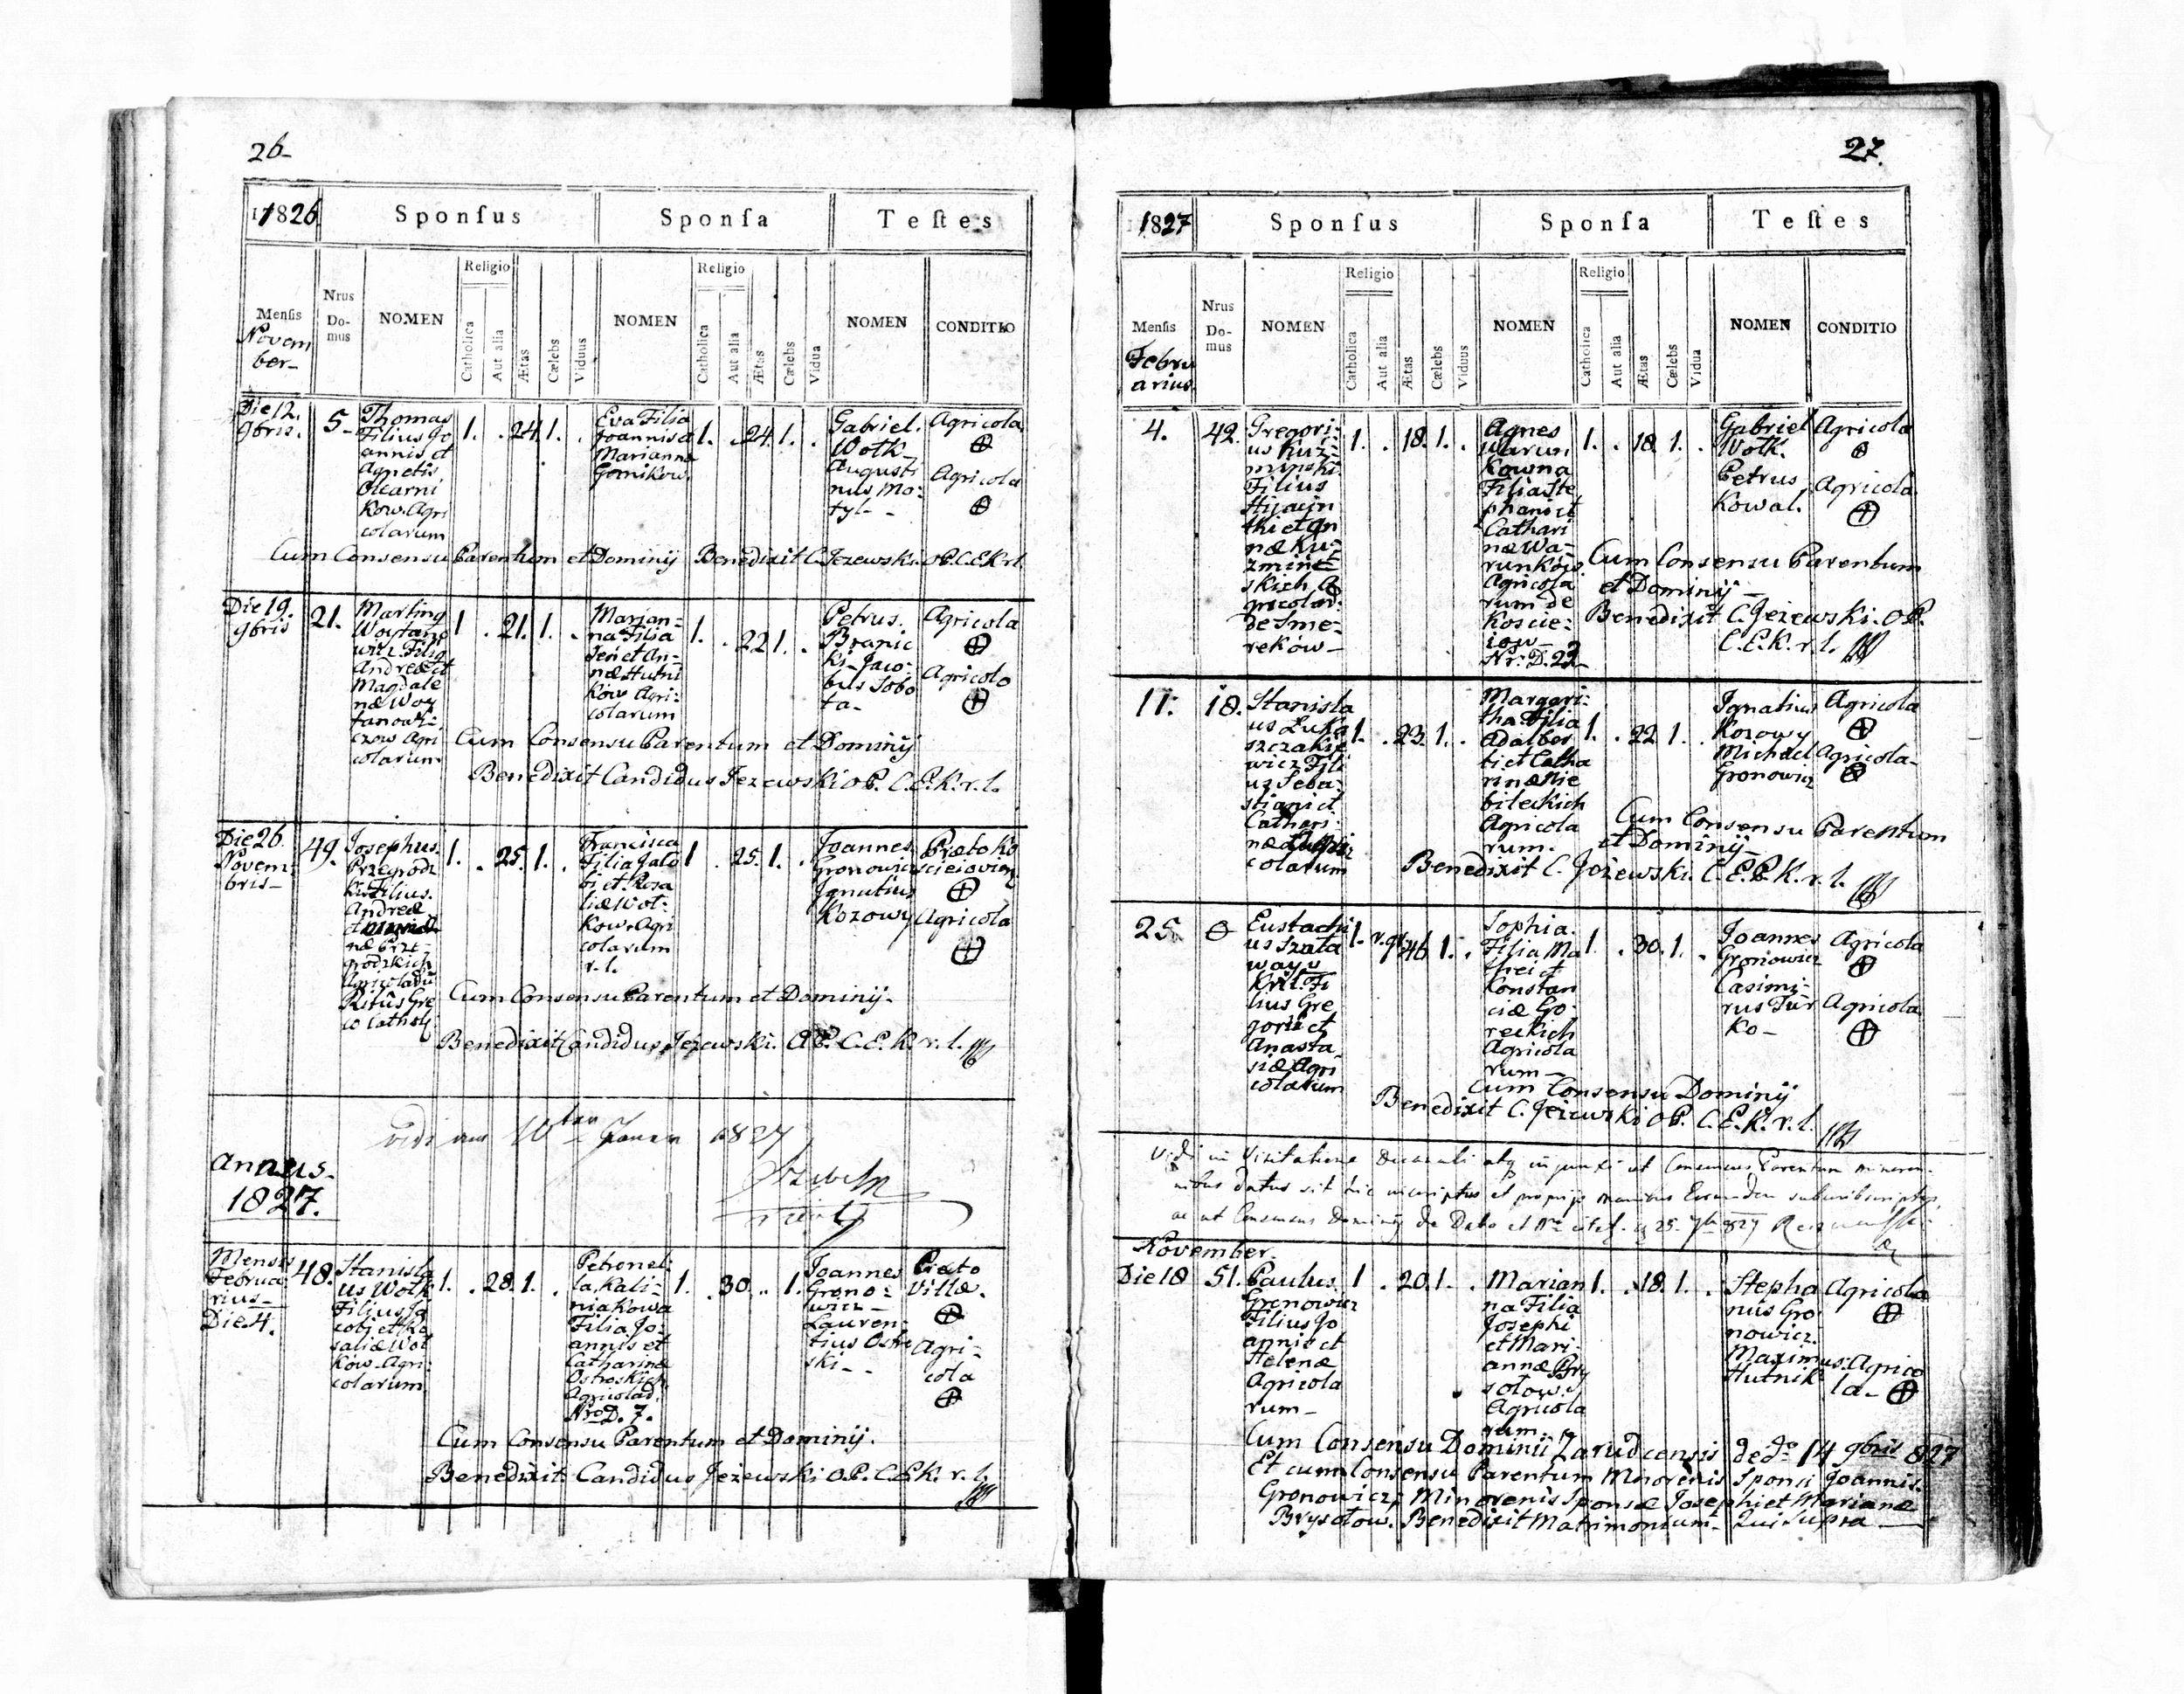 26
1826
Sponsus
Sponsa
Testes
Mensis
Novem
ber
Nrus
Do-
mus
NOMEN
Religio
Catholica
Aut alia
Ætas
Cælebs
Viduus
NOMEN
Religio
Catholica
Aut alia
Ætas
Cælebs
Vidua
NOMEN
CONDITIO
Die 12.
9bris.
5
Thomas
Filius Jo
annis et
Agnetis
Olearni
kow. Agri
colarum
1. . 24. 1. .
Eva Filia
Joannis et
Marianna
Gornikow.
1. . 24. 1. .
Gabriel.
Wotk
Augusti
nus Mo-
tyl-
Agricola
Agricola
Cum Consensu Parentum et Dominij Benedixit C. Jezewski. O.P.C.E.K.r.l.
Die 19.
9bris
21.
Martinq
Woytano
wicz Filiq
Andreæ et
Magdale
næ Woy
tanowi-
czow Agri
colarum
1 . 21. 1. .
Marian-
na Filia
Jen et An-
næ Hutni
kow Agri-
colarum
1. . 22 1. .
Petrus.
Branic
ki- Jaco-
bus Sobo
ta-
Agricola
Agricola
Cum Consensu Parentum et Dominij
Benedixit Candidus Jezewski O.P. C.E.K.r.l.
Die 26.
Novem
bris-
49.
Josephus.
Przegrodz
ki Filius.
Andreæ
næ Prze-
grodzkich
Agricolarū
Ritûs Gre
co Cathol:
1. . 25. 1. .
Francisca
Filia Jaco
bi et Rosa
liæ Wot-
kow. Agri
colarum
r. l.
1 . 25. 1. .
Joannes
Gronowicz
Ignatius
Kozowy
Præto Ko
scieiovien
Agricola
Cum Consensu Parentum et Dominij.
Benedixit Candidus Jezewski. O.P. C.E.K.r.l.
vidi am 10 Janer 1827
Annus.
1827.
Mensis
Februa
rius-
Die 4.
48.
Stanisla
us Wotk
Filius Ja
cobi et Ro
saliæ Wot
kow. Agri-
colarum
1. . 28. 1. .
Petronel-
la Kali-
niakowa
Filia Jo-
annis et
Catharinæ
Ostroskich
Agricolar.
Nro D. 7.
1. . 30. . 1.
Joannes
Grono-
wicz-
Lauren-
tius Ostro
ski-
Præto
Villæ.
Agri-
cola
Cum Consensu Parentum et Dominij.
Benedixit Candidus Jezewski O.P. C.E.K. r. l.
27.
1827
Sponsus
Sponsa
Testes
Mensis
Febru
arius
Nrus
Do-
mus
NOMEN
Religio
Catholica
Aut alia
Ætas
Cælebs
Viduus
NOMEN
Religio
Catholica
Aut alia
Ætas
Cælebs
Vidua
NOMEN
CONDITIO
4.
42.
Gregori-
us Kuz-
minski
Filius
Hijacin
thi et An
næ Ku-
zmin-
skich A
gricolar.
De Sme-
rekow-
1. . 18. 1. .
Agnes
Warun
kowna
Filia Ste
phani et
Cathari
næ Wa-
runkow
Agricola
rum de
Koscie-
iow-
Nr: D. 23-
1. . 18. 1. .
Gabriel
Wotk.
Petrus
Kowal.
Agricola
Agricola.
Cum Consensu Parentum
et Dominij-
Benedixit C. Jezewski. O.P.
C.E.K.r.l.
11.
18.
Stanisla
us Luka
szczakie
wicz Fili
us Seba-
stiani et
Cathari-
næ
colarum
1. . 23. 1. .
Margari-
tha Filia
Adalber
ti et Catha
rinæ Nie
bileckich
Agricola
rum.
1. . 22. 1. .
Ignatius
Kozowy
Michael
Gronowicz
Agricola
Agricola-
Cum Consensu Parentum
et Dominij-
Benedixit C. Jezewski. C.E.P.K.r.l.
25.
Eustachi
us Szata
Fi
lius Gre
gorii et
Anasta
siæ Agri
colarum
1. r. g. 46 1. .
Sophia.
Filia Ma
thei et
Konstan
ciæ Go-
reckich
Agricola
rum-
1 . 30. 1. .
Joannes
Gronowicz
Casimi-
rus Tur
ko-
Agricola
Agricola
Cum Consensu Dominij
Benedixit C. Jezewski O.P. C.E.K.r.l.
Vidi in Visitatione Decanali atq injunxi ut Consensus Parentum minoren-
nibus datus sit hic inscriptus et propijs manibus Eorundem
ac ut Consensus Dominij de Dato et Nro citet. 25. 7b 827
November.
Die 18
51.
Paulus
Gronowicz
Filius Jo
annis et
Helenæ
Agricola
rum-
1 . 20. 1. .
Marian
na Filia
Josephi
et Mari-
annæ Bry
sotow.
Agricola
rum
1. . 18. 1. .
Stepha
nus Gro
nowicz.
Maximus
Hutnik
Agricola
Agrico
la-
Cum Consensu Dominii Zarudcensis de do 14 9bris 827
Et cum Consensu Parentum Minorenis Sponsi Joannis.
Gronowicz; Minorenis Sponsæ Josephi et Marianæ
Brysotow. Benedixit Matrimonium- Qui Supra